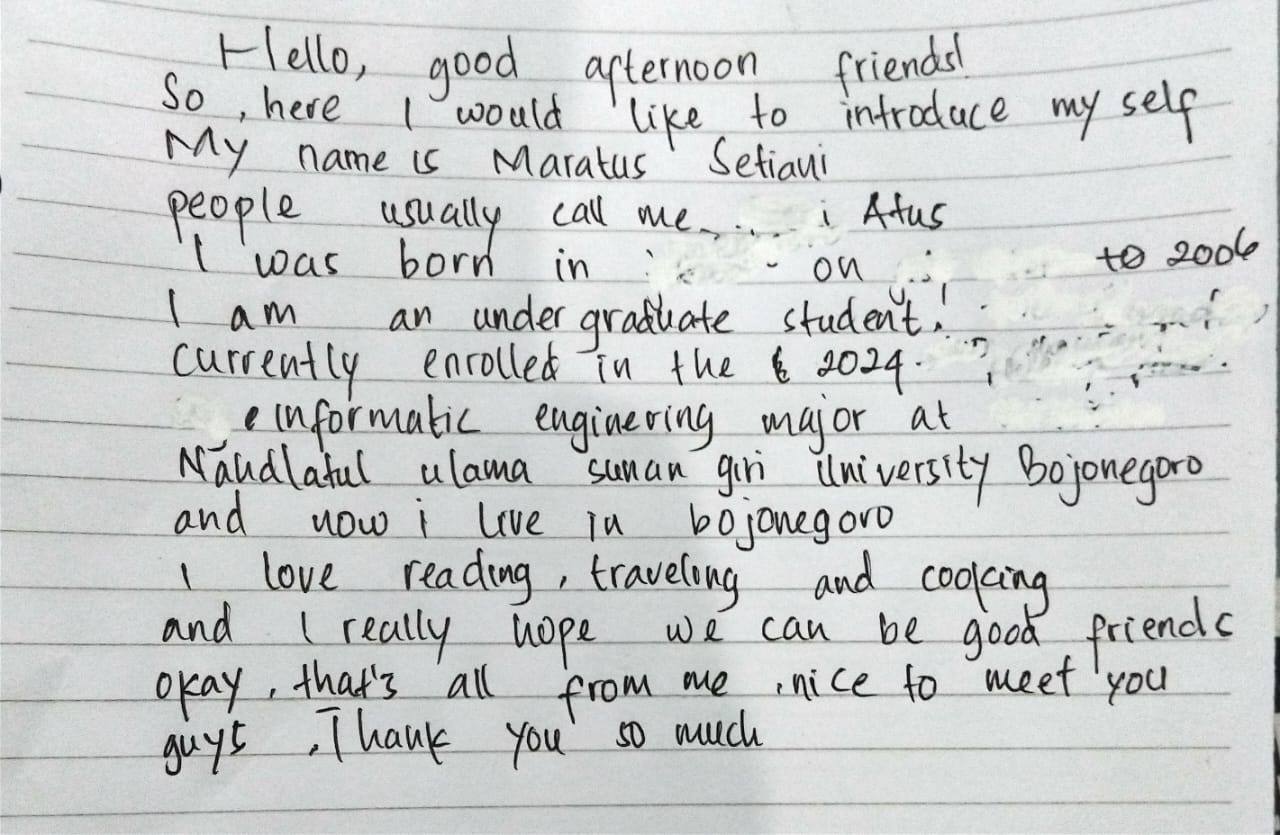 Hello, good afternoon friends!
So, here I would like to introduce my self
My name is Maratus Setiani
people usually call me i Atus
I was born in on to 2006
I am an under graduate student!
currently enrolled in the 2024.
e informatic enginering major at
Nahdlatul ulama sunan giri University Bojonegoro
and now i live in bojonegoro
I love reading, traveling and cooking
and I really hope we can be good friends
okay, that's all from me, nice to meet you
guys, Thank you so much